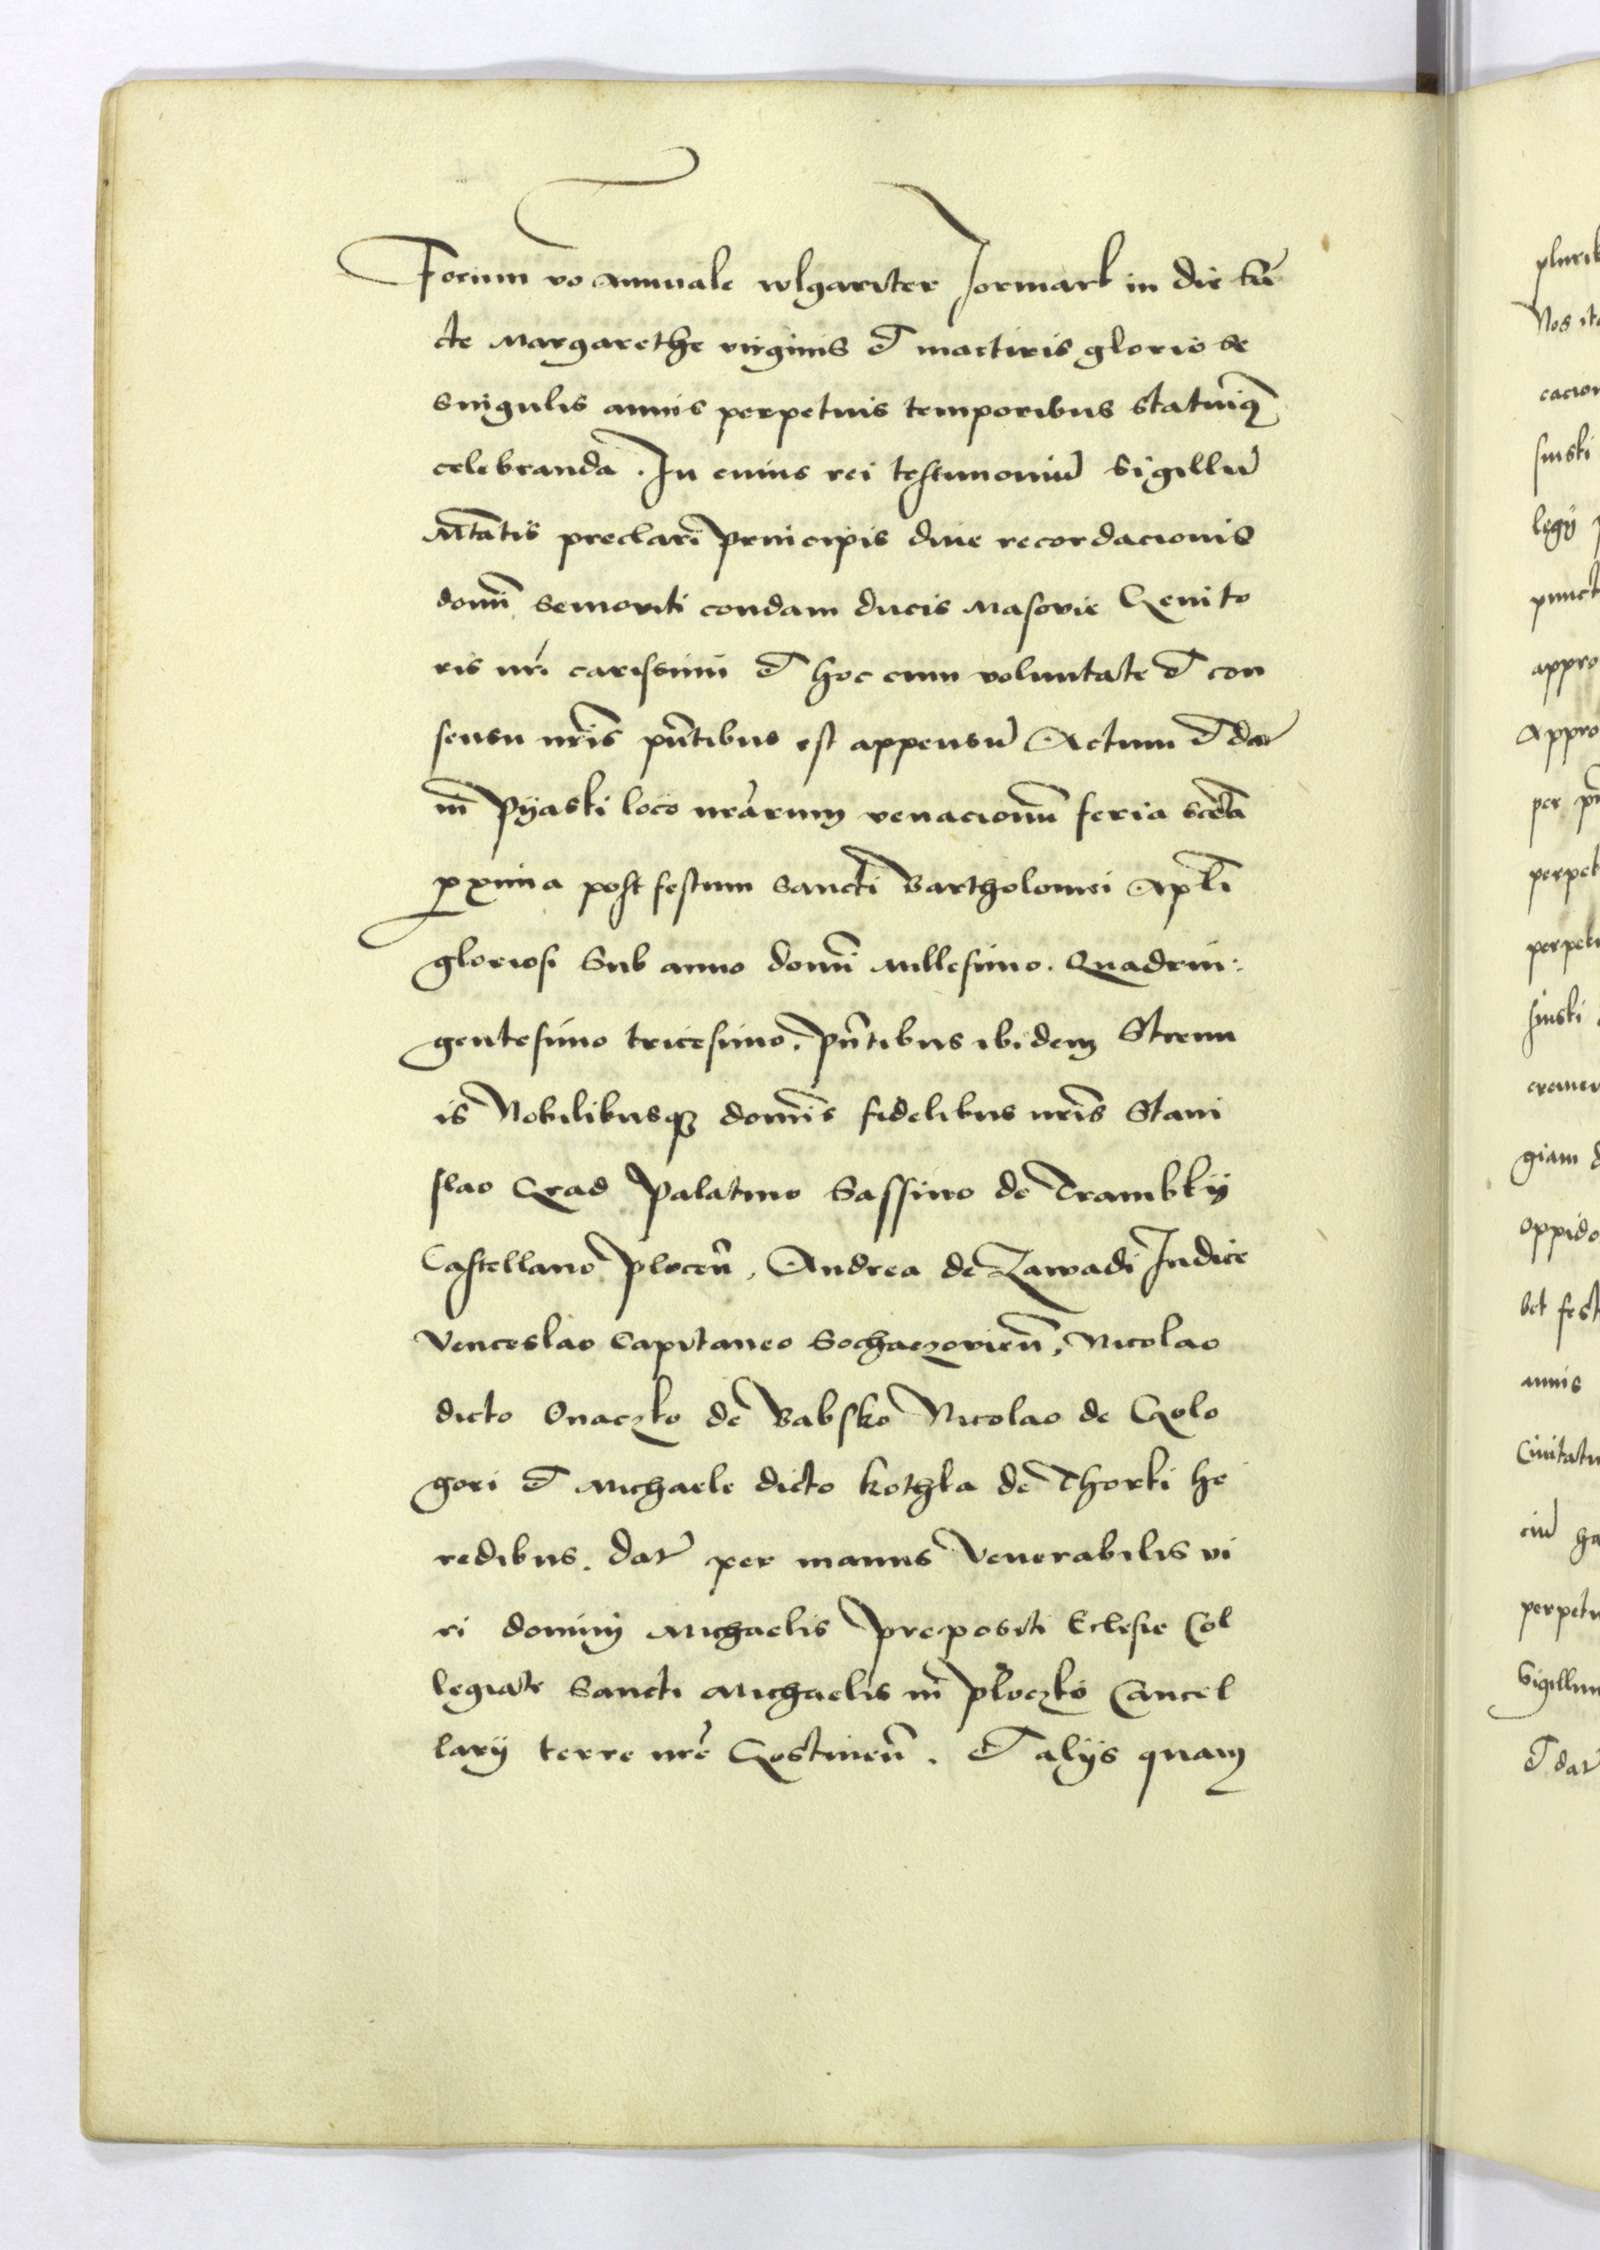 Forum vo annuale wlgariter Jormark in die sā
cte Margarethe virginis et martiris gloriose
singulis annis perpetuis temporibus statuimq
celebranda. In cuius rei testimoniū sigillū
preclari principis diue recordacionis
domī Semoviti condam ducis Masovie Genito
ris nr̄i carissimi et hoc cum voluntate et con
sensu nr̄is pn̄tibus est appensū Actum et dat
in Pyaski loco nr̄arum venacionū feria
pxima post festum Sancti Bartholomei Apl̄i
gloriosi Sub anno domī Millesimo. Quadrin:
gentesimo tricesimo. pn̄tibus ibidem Strenu
is Nobilibusq domīs fidelibus nr̄is Stani
slao Grad Palatino Sassino de Trambky
Castellano plocen̄, Andrea de Zawadi Judice
Venceslao Capitaneo Sochaczovien̄, Nicolao
dicto Onaczko de Babsko Nicolao de Golo
gori et Michaele dicto kothka de Thorki he
redibus. dat per manus Venerabilis vi
ri domini Michaelis prepositi Eclesie Col
legiate Sancti Michaelis in ploczko Cancel
larij terre nr̄e Gostinen̄. et alijs quam
pluri
Nos
cacion
sinski
legy
punct
appro
Appro
per
perpet
perpet
sinski
giam
oppido
bet fest
annis
Civitat
perpet
Sigillum
et dat